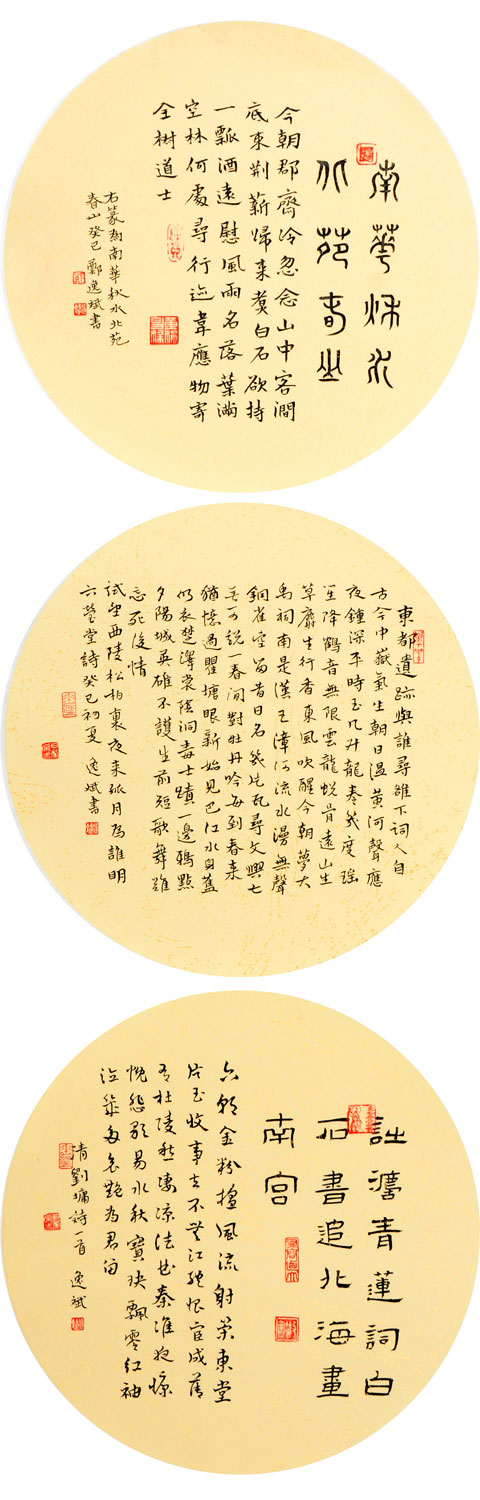 南華秋水
北苑春山
今朝郡齋冷忽念山中客澗
底束荊薪歸來煮白石欲持
一瓢酒遠慰風雨名落葉滿
空林何處尋行迹韋應物寄
全樹道士
右篆為南華秋水北苑
春山癸巳鄭逸斌書
東都遺跡與誰尋雒下詞人自
古今中嶽氣生朝日溫黃河聲應
夜鍾深平時玉几升龍幾度瑤
笙降鶴音無限雲龍蛻骨遠山生
草靡生行香東風吹醒今朝夢大
禹祠南是漢王漳河流水漫無聲
銅雀空留昔日名幾片瓦尋文與七
可說一春閒對牡丹吟每到春來
猶憶過瞿塘眼新始見巴江水身舊
仍衣楚澤裳陰洞毒士蹟一邊鴉點
夕陽城英雄不護生前短歌舞難
忘死後情
試望西陵松柏裏夜來孤月為誰明
六瑩堂詩癸巳初夏逸斌書
註灋青蓮詞白
石書追北海畫
南宮
六朝金粉擅風流射策東堂
片玉收事去不無江總恨官成舊
有杜陵愁淒涼法曲秦淮夜慷
慨悲歌易水秋寶玦飄零紅袖
泣幾多哀艷為君留
清劉墉詩一首逸斌